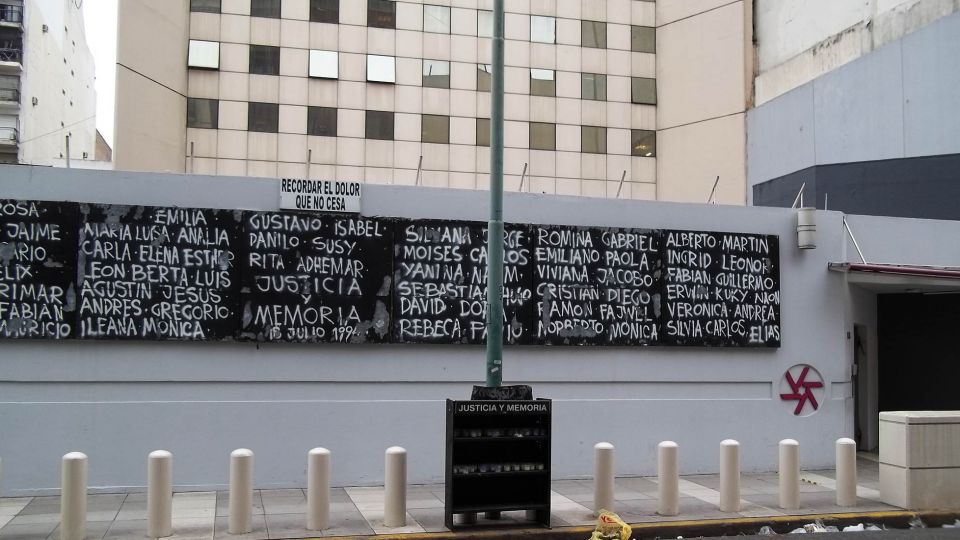 RECORDAR EL DOLOR
QUE NO CESA
ROSA
JAIME
ARIO
ELIX
RIMAR
FABIAN
MAURICIO
EMILIA
MARIA LUISA ANALIA
CARLA ELENA ESTHER
LEON BERTA LUIS
AGUSTIN JESUS
ANDRES GREGORIO
ILEANA MONICA
GUSTAVO ISABEL
DANILO SUSY
RITA ADHEMAR
JUSTICIA
Y
MEMORIA
18 JULIO 1994
SILVANA JORGE
MOISES CARLOS
YANINA NAUM
SEBASTIAN
DAVID DORA
REBECA
ROMINA GABRIEL
EMILIANO PAOLA
VIVIANA JACOBO
CRISTIAN DIEGO
RAMON FAJWEL
NORBERTO MÓNICA
ALBERTO MARTIN
INGRID LEONOR
FABIAN GUILLERMO
ERWIN KUKY NAON
VERONICA ANDREA
SILVIA CARLOS ELIAS
JUSTICIA Y MEMORIA